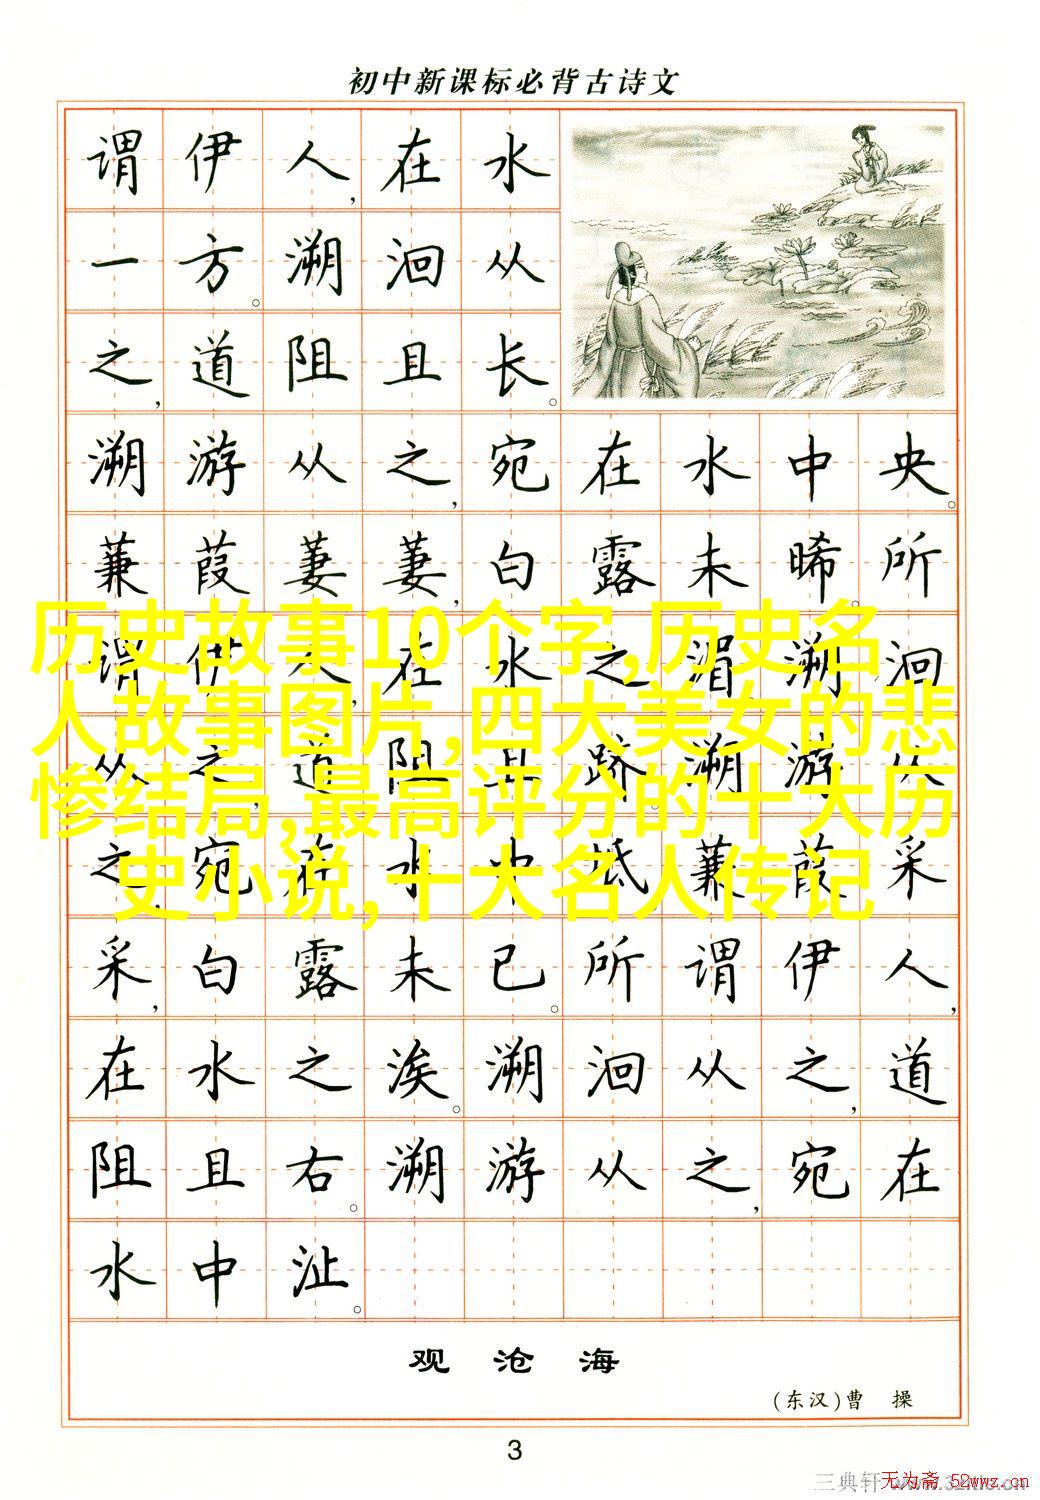 初中新课标必背古诗文
谓伊人,在水
一方。溯洄从
之,道阻且长。
溯游从之,宛在水中央。
蒹葭萋萋,白露未晞。所
谓伊人,在水之湄。溯洄
从之,道阻且跻。溯游从
之,宛在水中坻。蒹葭采
采,白露未已。所谓伊人,
在水之涘。溯洄从之,道
阻且右。溯游从之,宛在
水中沚。
历史故事10个字,历史名
人故事图片,四大美女的悲
惨结局,最高评分的十大历
史小说,十大名人传记
观沧海
(东汉)曹 操
3
三典轩
无为斋 52wwz.cn